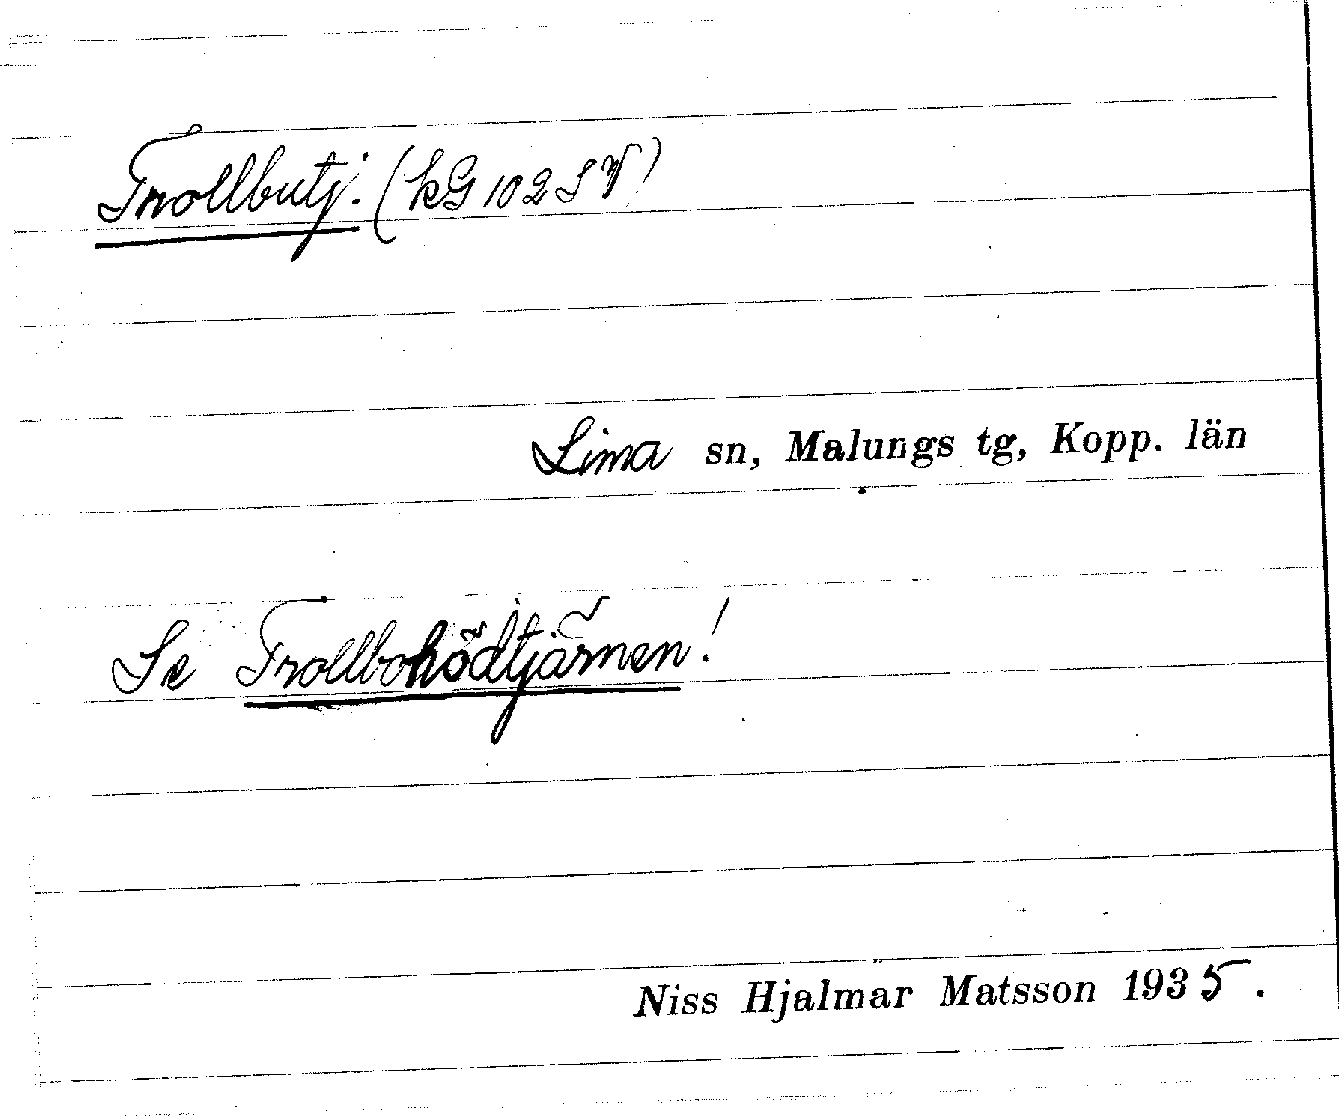 Trollbutj. (kG 102 SV)
Lima sn, Malungs tg, Kopp. län
Se Trollbohödtjärnen!
Niss Hjalmar Matsson 1935.